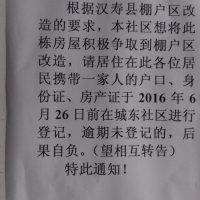 根据汉寿县棚户区改
造的要求，本社区想将此
栋房屋积极争取到棚户区
改造，请居住在此各位居
民携带一家人的户口、身
份证、房产证于 2016 年 6
月 26 日前在城东社区进行
登记，逾期未登记的，后
果自负。（望相互转告）
特此通知！